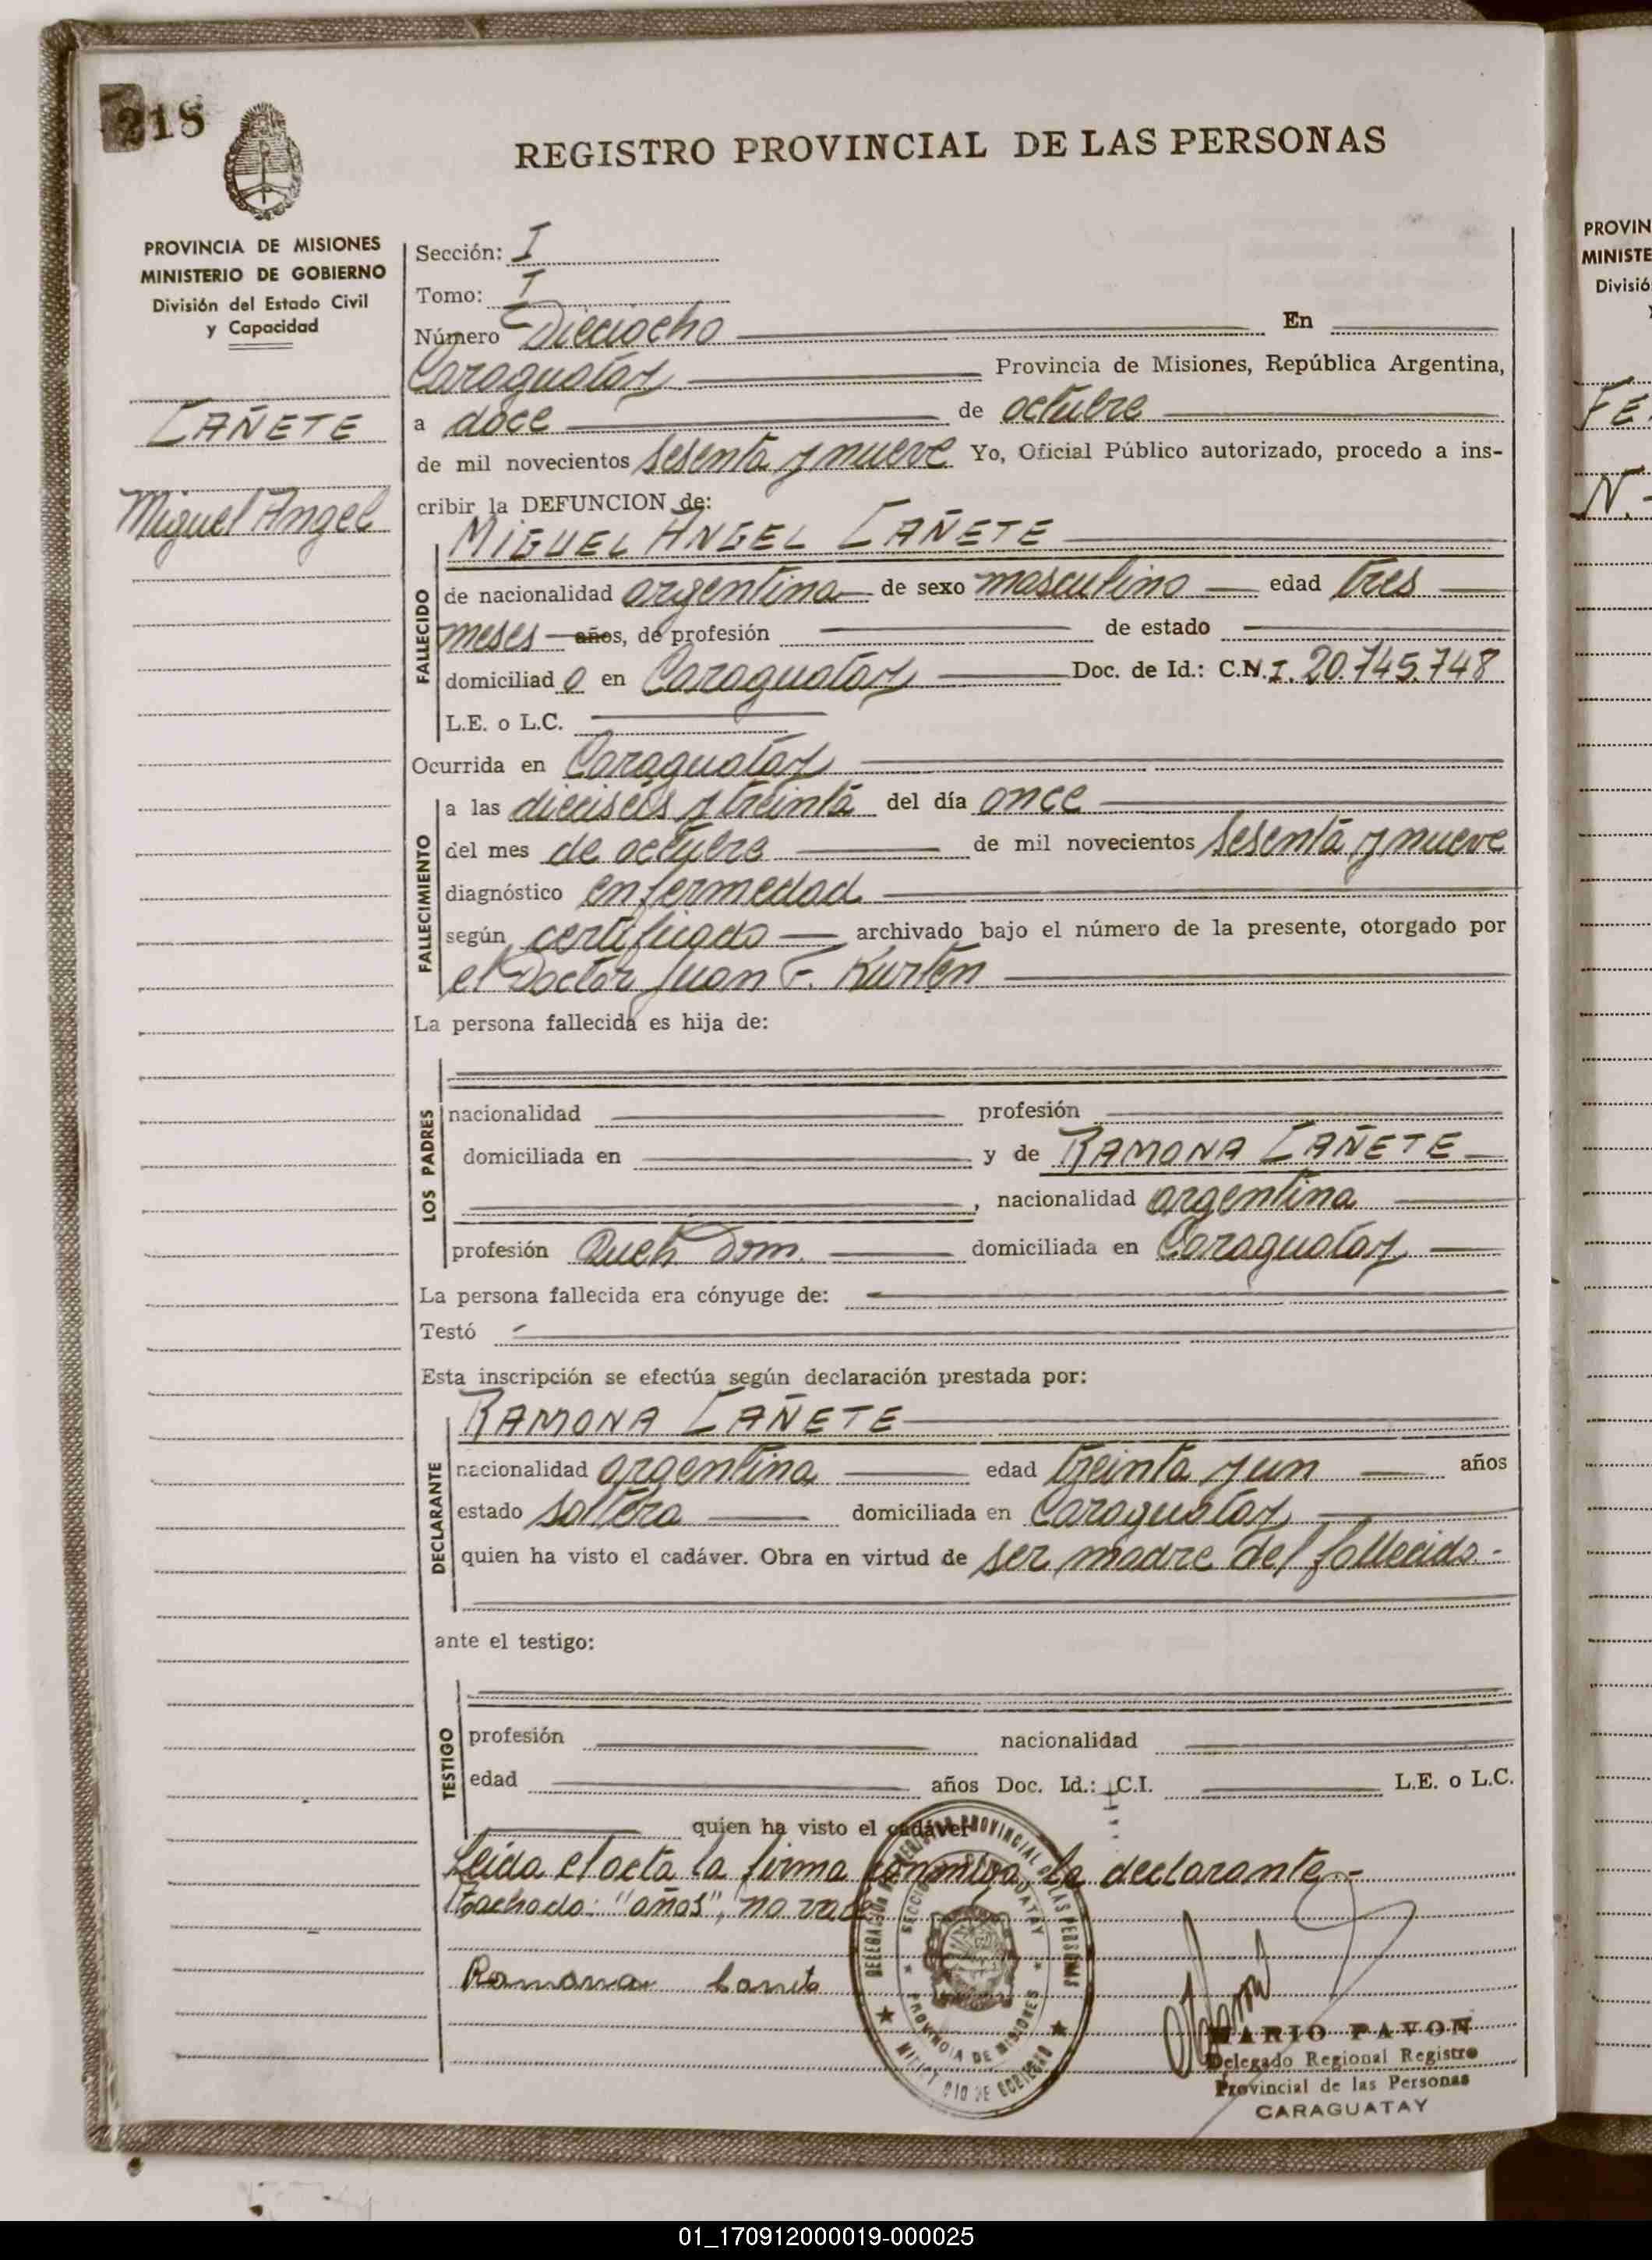 218
REGISTRO PROVINCIAL DE LAS PERSONAS
PROVINCIA DE MISIONES
MINISTERIO DE GOBIERNO
División del Estado Civil
y Capacidad
CAÑETE
Miguel Angel
Sección: I
Tomo: I
Número Dieciocho En
Caraguatay Provincia de Misiones, República Argentina,
a doce de octubre
de mil novecientos sesenta y nueve Yo, Oficial Público autorizado, procedo a ins-
cribir la DEFUNCION de:
MIGUEL ANGEL CAÑETE
FALLECIDO
de nacionalidad argentina de sexo masculino edad tres
meses años, de profesión de estado
domiciliad o en Caraguatay Doc. de Id.: C.N.I. 20.745.748
L.E. o L.C.
Ocurrida en Caraguatay
FALLECIMIENTO
a las dieciseis y treinta del día once
del mes de octubre de mil novecientos sesenta y nueve
diagnóstico enfermedad
según certificado archivado bajo el número de la presente, otorgado por
el Doctor Juan F. Kurten
La persona fallecida es hija de:
LOS PADRES
nacionalidad profesión
domiciliada en y de RAMONA CAÑETE
, nacionalidad argentina
profesión Queh. Dom. domiciliada en Caraguatay
La persona fallecida era cónyuge de:
Testó
Esta inscripción se efectúa según declaración prestada por:
RAMONA CAÑETE
DECLARANTE
nacionalidad argentina edad treinta y un años
estado soltera domiciliada en Caraguatay
quien ha visto el cadáver. Obra en virtud de ser madre del fallecido.-
ante el testigo:
TESTIGO
profesión nacionalidad
edad años Doc. Id.: C.I. L.E. o L.C.
quien ha visto el cadáver
Leida el acta la firma conmigo la declarante.-
Tachado: "años", no vale
Ramona
PROVINCIAL DE LAS PERSONAS
PROVINCIA DE MISIONES
MARIO PAVON
Delegado Regional Registro
Provincial de las Personas
CARAGUATAY
PROVIN
MINISTE
Divisió
FE
N.
01_170912000019-000025